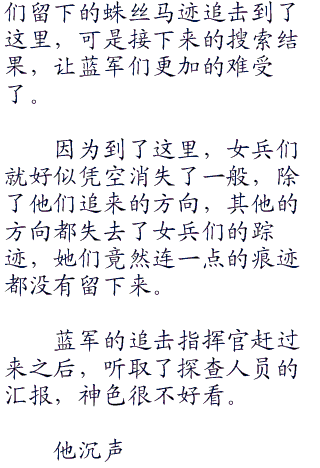 们留下的蛛丝马迹追击到了
这里，可是接下来的搜索结
果，让蓝军们更加的难受
了。
因为到了这里，女兵们
就好似凭空消失了一般，除
了他们追来的方向，其他的
方向都失去了女兵们的踪
迹，她们竟然连一点的痕迹
都没有留下来。
蓝军的追击指挥官赶过
来之后，听取了探查人员的
汇报，神色很不好看。
他沉声